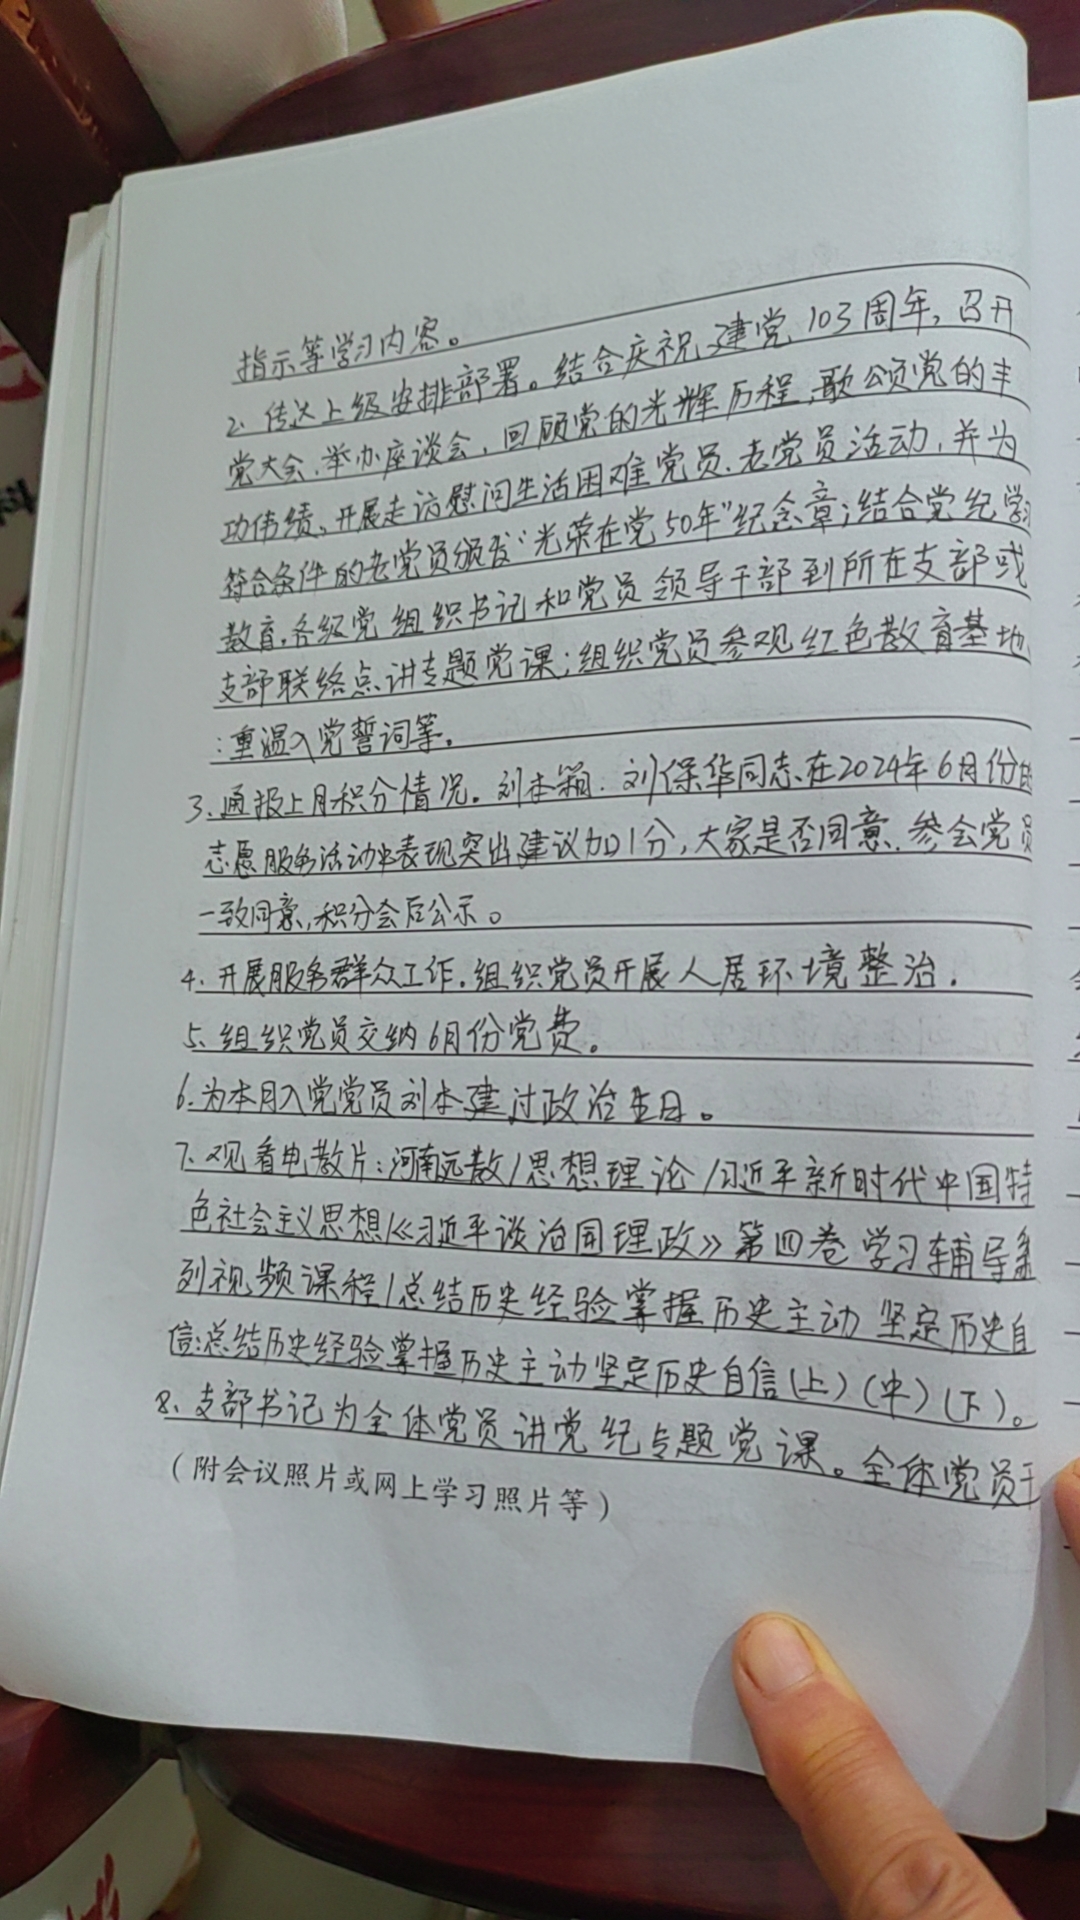 指示等学习内容。
2、传达上级安排部署。结合庆祝建党103周年，召开
党大会、举办座谈会，回顾党的光辉历程，歌颂党的丰
功伟绩。开展走访慰问生活困难党员、老党员活动，并为
符合条件的老党员颁发“光荣在党50年”纪念章；结合党纪学习
教育，各级党组织书记和党员领导干部到所在支部或
支部联络点讲专题党课；组织党员参观红色教育基地
：重温入党誓词等。
3、通报上月积分情况。刘本箱、刘保华同志在2024年6月份的
志愿服务活动中表现突出建议加1分，大家是否同意．参会党员
一致同意，积分会后公示。
4、开展服务群众工作．组织党员开展人居环境整治．
5、组织党员交纳6月份党费。
6、为本月入党党员刘本建过政治生日。
7、观看电教片：河南远教/思想理论/习近平新时代中国特
色社会主义思想/《习近平谈治国理政》第四卷学习辅导系
列视频课程/总结历史经验掌握历史主动 坚定历史自
信：总结历史经验掌握历史主动坚定历史自信（上）（中）（下）。
8、支部书记为全体党员讲党纪专题党课。全体党员干
（附会议照片或网上学习照片等）